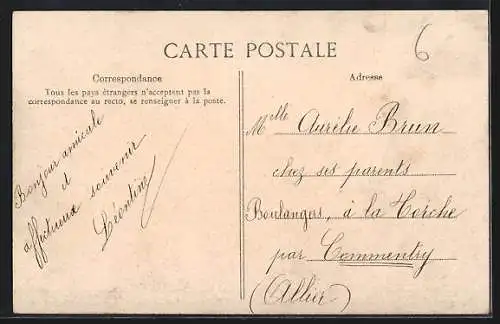 6
CARTE POSTALE
Correspondance
Tous les pays étrangers n'acceptent pas la
correspondance au recto, se renseigner à la poste.
Adresse
Bonjour amicale
et
affectueux souvenir
Léontine
Mlle Aurélie Brun
chez ses parents
Boulangers, à la Torche
par Commentry
(Allier)